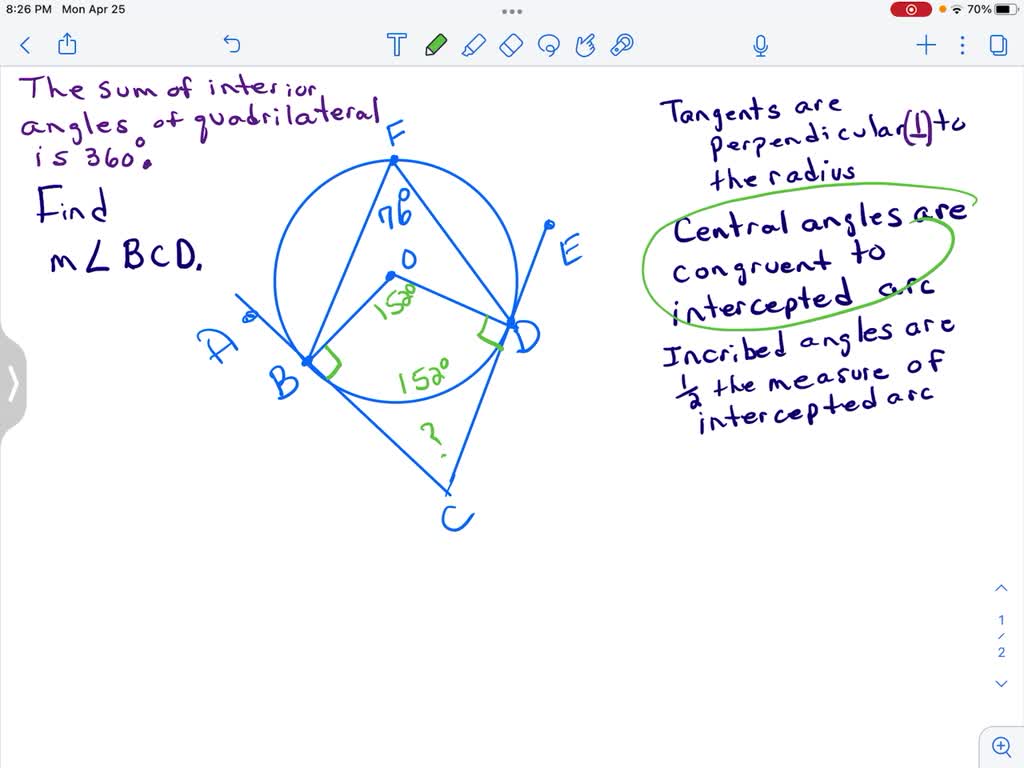 8:26 PM Mon Apr 25
70%
The sum of interior
angles of quadrilateral
is 360°.
Find
m∠BCD.
F
76°
O
152°
E
A
B
D
152°
?
C
Tangents are
perpendicular (⊥) to
the radius
Central angles are
congruent to
intercepted arc
Incribed angles are
1/2 the measure of
intercepted arc
1
/
2